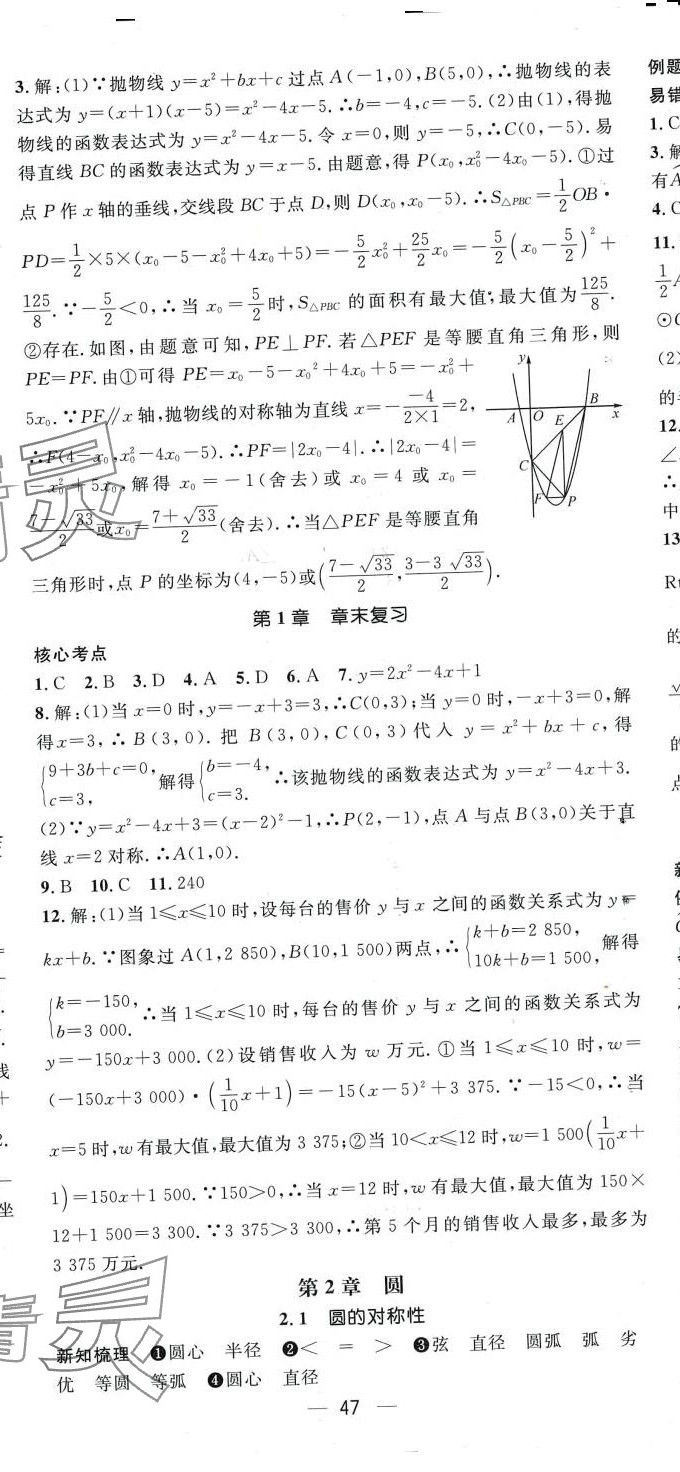 3.解:(1)∵抛物线 y=x²+bx+c 过点 A(-1,0),B(5,0),∴抛物线的表
达式为 y=(x+1)(x-5)=x²-4x-5.∴b=-4,c=-5.(2)由(1),得抛
物线的函数表达式为 y=x²-4x-5.令 x=0,则 y=-5,∴C(0,-5).易
得直线 BC 的函数表达式为 y=x-5.由题意,得 P(x₀,x₀²-4x₀-5).①过
点 P 作 x 轴的垂线,交线段 BC 于点 D,则 D(x₀,x₀-5).∴S△PBC=1/2 OB·
PD=1/2×5×(x₀-5-x₀²+4x₀+5)=-5/2 x₀²+25/2 x₀=-5/2(x₀-5/2)²+
125/8.∵-5/2<0,∴当 x₀=5/2时,S△PBC 的面积有最大值,最大值为125/8.
②存在.如图,由题意可知,PE⊥PF.若△PEF 是等腰直角三角形,则
PE=PF.由①可得 PE=x₀-5-x₀²+4x₀+5=-x₀²+
5x₀.∵PF∥x 轴,抛物线的对称轴为直线 x=-(-4)/(2×1)=2,
∴F(4-x₀,x₀²-4x₀-5).∴PF=|2x₀-4|.∴|2x₀-4|=
-x₀²+5x₀,解得 x₀=-1(舍去)或 x₀=4 或 x₀=
(7-√33)/2或x₀=(7+√33)/2(舍去).∴当△PEF 是等腰直角
三角形时,点 P 的坐标为(4,-5)或((7-√33)/2,(3-3√33)/2).
y
A O B x
E
C
F P
第 1 章 章末复习
核心考点
1.C 2.B 3.D 4.A 5.D 6.A 7.y=2x²-4x+1
8.解:(1)当 x=0 时,y=-x+3=3,∴C(0,3);当 y=0 时,-x+3=0,解
得x=3,∴B(3,0).把 B(3,0),C(0,3)代入 y=x²+bx+c,得
{9+3b+c=0, c=3, 解得{b=-4, c=3. ∴该抛物线的函数表达式为 y=x²-4x+3.
(2)∵y=x²-4x+3=(x-2)²-1,∴P(2,-1),点 A 与点 B(3,0)关于直
线 x=2 对称.∴A(1,0).
9.B 10.C 11.240
12.解:(1)当 1≤x≤10 时,设每台的售价 y 与 x 之间的函数关系式为 y=
kx+b.∵图象过 A(1,2 850),B(10,1 500)两点,∴{k+b=2 850, 10k+b=1 500, 解得
{k=-150, b=3 000. ∴当 1≤x≤10 时,每台的售价 y 与 x 之间的函数关系式为
y=-150x+3 000.(2)设销售收入为 w 万元.①当 1≤x≤10 时,w=
(-150x+3 000)·(1/10 x+1)=-15(x-5)²+3 375.∵-15<0,∴当
x=5时,w 有最大值,最大值为 3 375;②当 10<x≤12 时,w=1 500(1/10 x+
1)=150x+1 500.∵150>0,∴当 x=12 时,w 有最大值,最大值为 150×
12+1 500=3 300.∵3 375>3 300,∴第 5 个月的销售收入最多,最多为
3 375万元.
第 2 章 圆
2.1 圆的对称性
新知梳理 ❶圆心 半径 ❷< = > ❸弦 直径 圆弧 弧 劣
优 等圆 等弧 ❹圆心 直径
— 47 —
例题
易错
1.C
3.解
有A
4.C
11.
1/2 A
⊙C
(2)
的半
12.
∠
∴
中
13
Rt
的
的
点
精灵
精灵